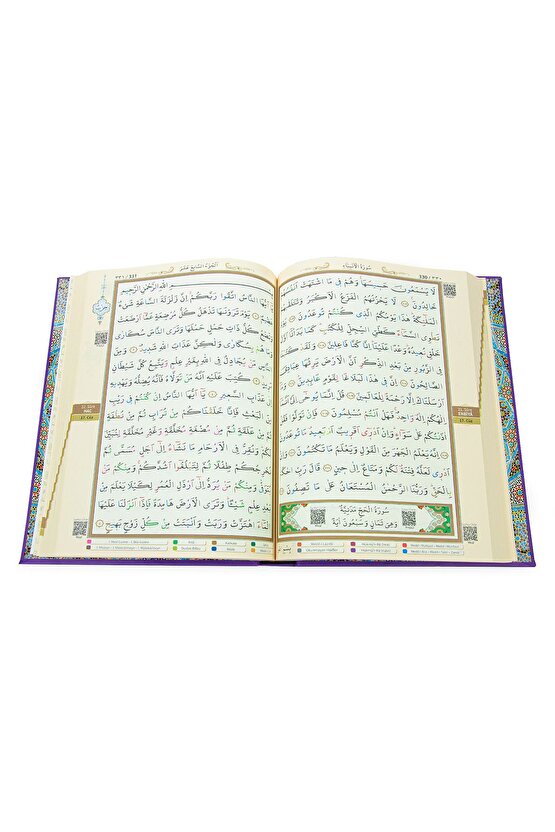 سُورَةُ الْاَنْبِيَاءِ
330 / ٣٣٠
لَا يَسْمَعُونَ حَسِيسَهَا وَهُمْ فِي مَا اشْتَهَتْ اَنْفُسُهُمْ
خَالِدُونَ لَا يَحْزُنُهُمُ الْفَزَعُ الْاَكْبَرُ وَتَتَلَقّٰيهُمُ
الْمَلٰئِكَةُ هٰذَا يَوْمُكُمُ الَّذِي كُنْتُمْ تُوعَدُونَ يَوْمَ
نَطْوِي السَّمَاءَ كَطَيِّ السِّجِلِّ لِلْكُتُبِ كَمَا بَدَأْنَا اَوَّلَ
خَلْقٍ نُعِيدُهُ وَعْدًا عَلَيْنَا اِنَّا كُنَّا فَاعِلِينَ وَلَقَدْ كَتَبْنَا
فِي الزَّبُورِ مِنْ بَعْدِ الذِّكْرِ اَنَّ الْاَرْضَ يَرِثُهَا عِبَادِيَ
الصَّالِحُونَ اِنَّ فِي هٰذَا لَبَلَاغًا لِقَوْمٍ عَابِدِينَ وَمَا
اَرْسَلْنَاكَ اِلَّا رَحْمَةً لِلْعَالَمِينَ قُلْ اِنَّمَا يُوحٰى اِلَيَّ اَنَّمَا
اِلٰهُكُمْ اِلٰهٌ وَاحِدٌ فَهَلْ اَنْتُمْ مُسْلِمُونَ فَاِنْ تَوَلَّوْا فَقُلْ
اٰذَنْتُكُمْ عَلٰى سَوَاءٍ وَاِنْ اَدْرِي اَقَرِيبٌ اَمْ بَعِيدٌ مَا تُوعَدُونَ
اِنَّهُ يَعْلَمُ الْجَهْرَ مِنَ الْقَوْلِ وَيَعْلَمُ مَا تَكْتُمُونَ وَاِنْ
اَدْرِي لَعَلَّهُ فِتْنَةٌ لَكُمْ وَمَتَاعٌ اِلٰى حِينٍ قَالَ رَبِّ احْكُمْ
بِالْحَقِّ وَرَبُّنَا الرَّحْمٰنُ الْمُسْتَعَانُ عَلٰى مَا تَصِفُونَ
سُورَةُ الْحَجِّ مَدَنِيَّةٌ
وَهِيَ ثَمَانٍ وَسَبْعُونَ اٰيَةً
21. Sûre
ENBİYÂ
17. Cüz
اَلْجُزْءُ السَّابِعَ عَشَرَ
331 / ٣٣١
بِسْمِ اللهِ الرَّحْمٰنِ الرَّحِيمِ
يَا اَيُّهَا النَّاسُ اتَّقُوا رَبَّكُمْ اِنَّ زَلْزَلَةَ السَّاعَةِ شَيْءٌ
عَظِيمٌ يَوْمَ تَرَوْنَهَا تَذْهَلُ كُلُّ مُرْضِعَةٍ عَمَّا اَرْضَعَتْ
وَتَضَعُ كُلُّ ذَاتِ حَمْلٍ حَمْلَهَا وَتَرَى النَّاسَ سُكَارٰى
وَمَا هُمْ بِسُكَارٰى وَلٰكِنَّ عَذَابَ اللهِ شَدِيدٌ وَمِنَ
النَّاسِ مَنْ يُجَادِلُ فِي اللهِ بِغَيْرِ عِلْمٍ وَيَتَّبِعُ كُلَّ شَيْطَانٍ
مَرِيدٍ كُتِبَ عَلَيْهِ اَنَّهُ مَنْ تَوَلَّاهُ فَاَنَّهُ يُضِلُّهُ وَيَهْدِيهِ
اِلٰى عَذَابِ السَّعِيرِ يَا اَيُّهَا النَّاسُ اِنْ كُنْتُمْ فِي رَيْبٍ
مِنَ الْبَعْثِ فَاِنَّا خَلَقْنَاكُمْ مِنْ تُرَابٍ ثُمَّ مِنْ نُطْفَةٍ
ثُمَّ مِنْ عَلَقَةٍ ثُمَّ مِنْ مُضْغَةٍ مُخَلَّقَةٍ وَغَيْرِ مُخَلَّقَةٍ لِنُبَيِّنَ
لَكُمْ وَنُقِرُّ فِي الْاَرْحَامِ مَا نَشَاءُ اِلٰى اَجَلٍ مُسَمًّى ثُمَّ
نُخْرِجُكُمْ طِفْلًا ثُمَّ لِتَبْلُغُوا اَشُدَّكُمْ وَمِنْكُمْ مَنْ
يُتَوَفّٰى وَمِنْكُمْ مَنْ يُرَدُّ اِلٰى اَرْذَلِ الْعُمُرِ لِكَيْلَا يَعْلَمَ مِنْ
بَعْدِ عِلْمٍ شَيْئًا وَتَرَى الْاَرْضَ هَامِدَةً فَاِذَا اَنْزَلْنَا عَلَيْهَا
الْمَاءَ اهْتَزَّتْ وَرَبَتْ وَاَنْبَتَتْ مِنْ كُلِّ زَوْجٍ بَهِيجٍ
22. Sûre
HAC
17. Cüz